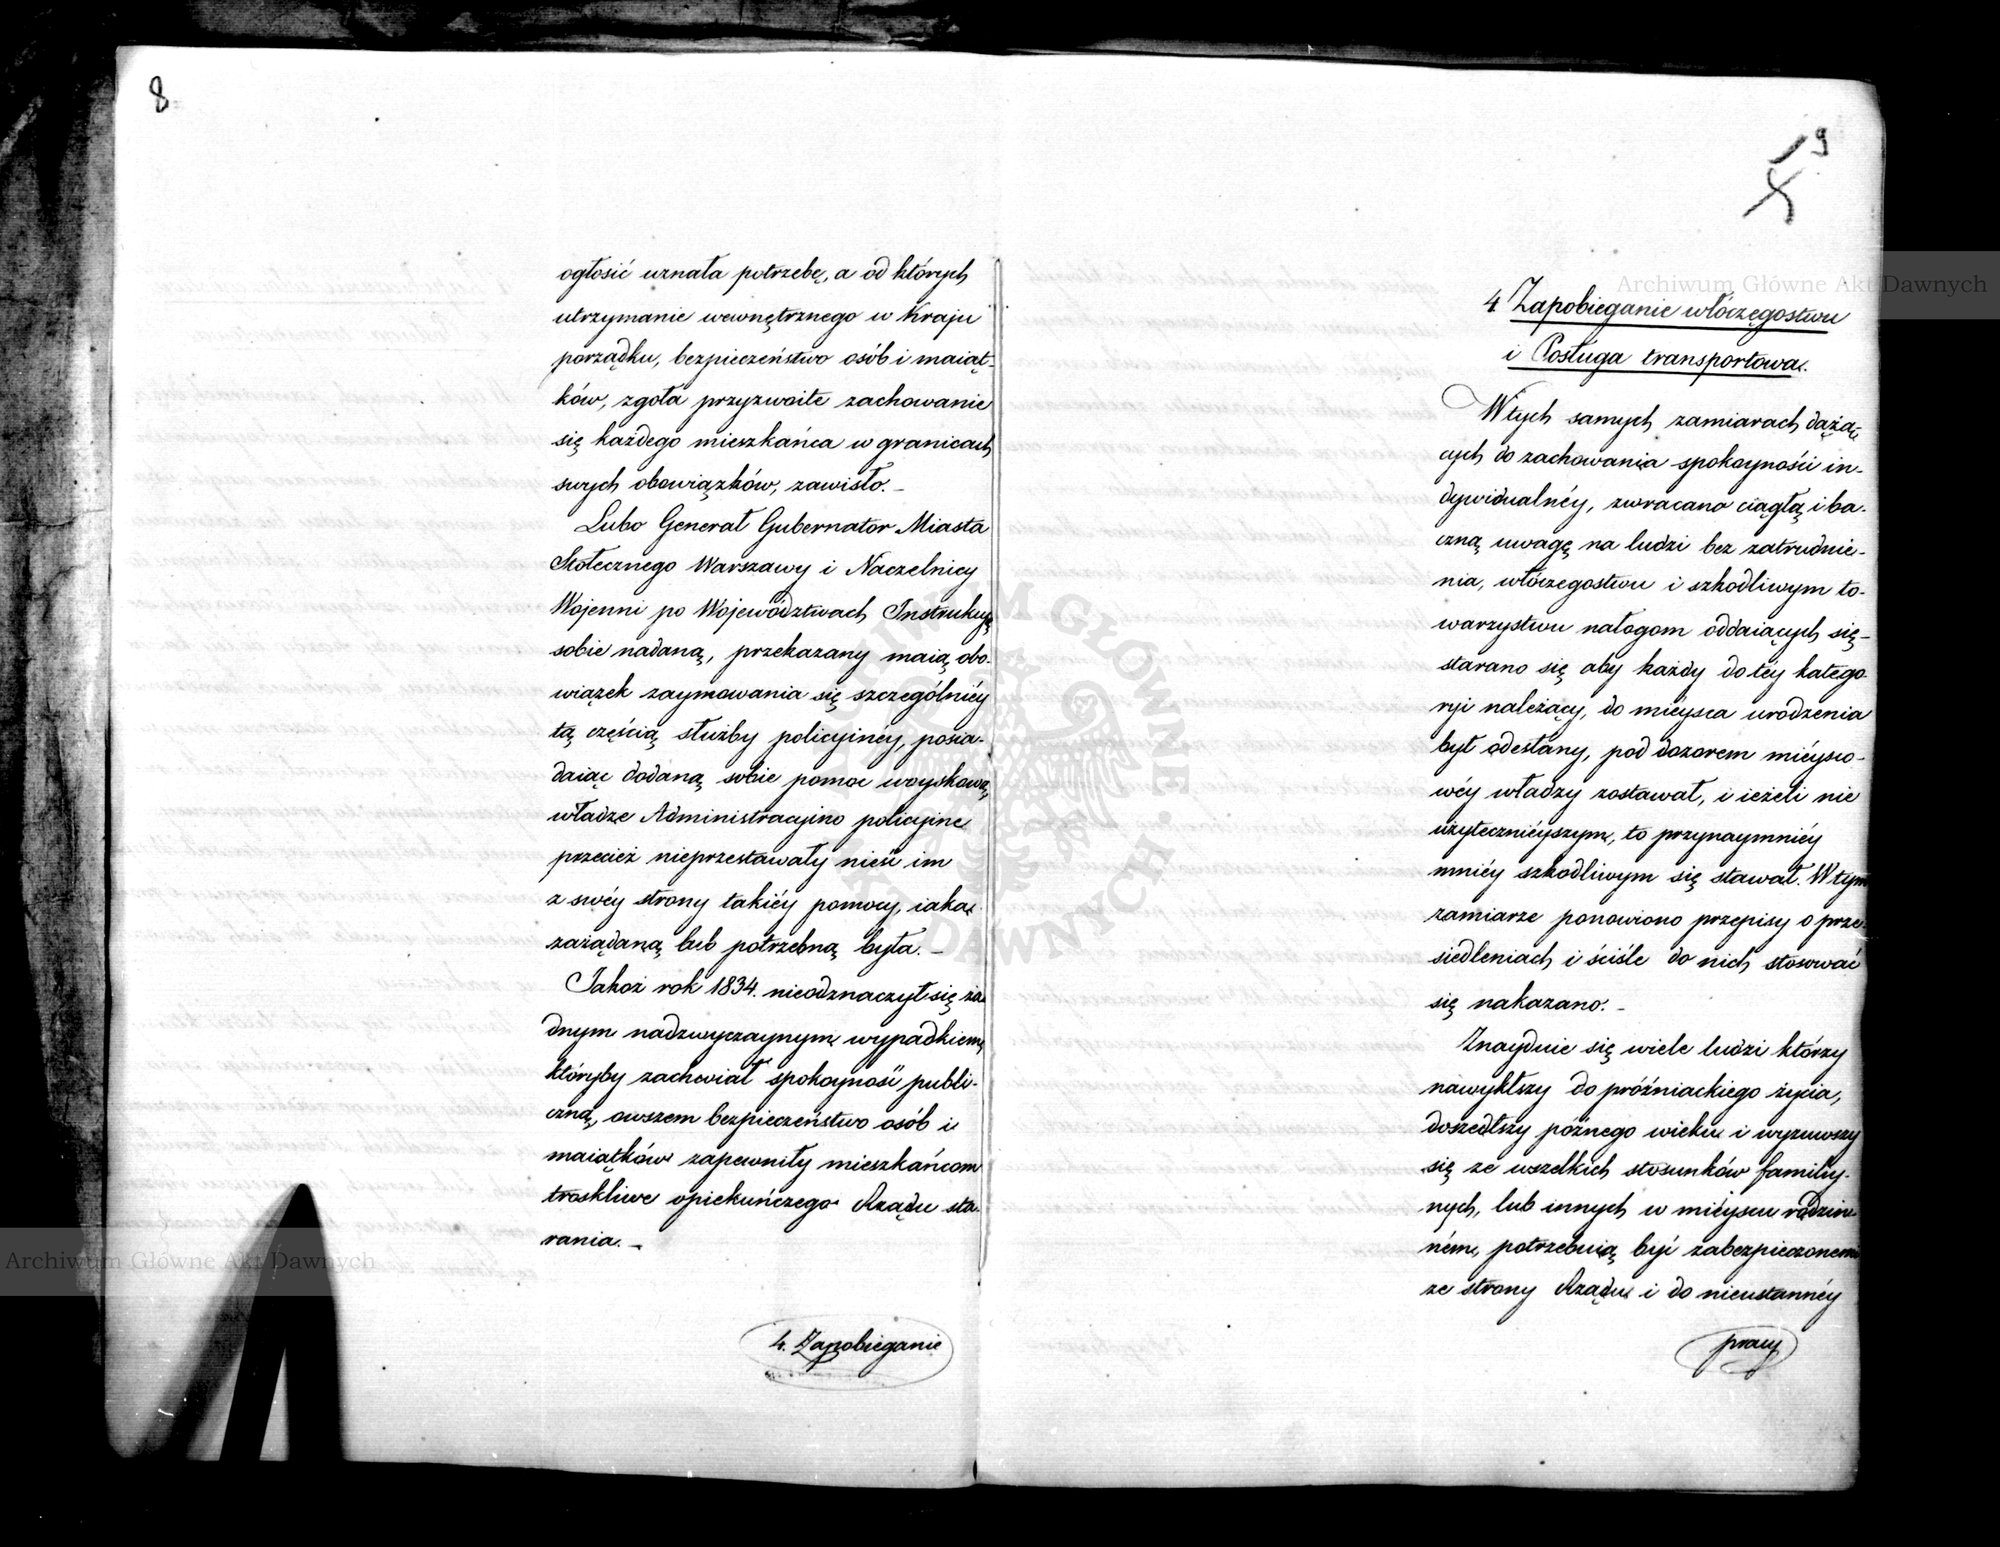 8
ogłosić uznała potrzebę, a od których
utrzymanie wewnętrznego w Kraju
porządku, bezpieczeństwo osób i maiąt-
ków, zgoła przyzwoite zachowanie
się każdego mieszkańca w granicach
swych obowiązków, zawisło. –
Lubo Generał Gubernator Miasta
Stołecznego Warszawy i Naczelnicy
Wojenni po Województwach Instrukcyą
sobie nadaną, przekazany maią obo-
wiązek zaymowania się szczególniéy
tą częścią służby policyinéy, posia-
daiąc dodaną sobie pomoc woyskową,
władze Administracyino policyine
przecież nieprzestawały nieść im
z swéy strony takiéy pomocy, iaka
zażądaną lub potrzebną była. –
Jakoż rok 1834. nieodznaczył się ża
dnym nadzwyczaynym wypadkiem,
któryby zachwiał spokoyność publi-
czną, owszem bezpieczeństwo osób i
maiątków zapewniły mieszkańcom
troskliwe opiekuńczego Rządu sta-
rania. –
4. Zapobieganie
19
4 Zapobieganie włóczęgostwu
i Posługa transportowa.
W tych samych zamiarach dążą-
cych do zachowania spokoyności in-
dywidualnéy, zwracano ciągłą i ba-
czną uwagę na ludzi bez zatrudnie-
nia, włóczegostwu i szkodliwym to-
warzystwu nałogom oddaiących się –
starano się aby każdy do téy katego-
ryi należący, do mieysca urodzenia
był odesłany, pod dozorem mieysco-
wéy władzy zostawał, i ieżeli nie
użytecznieyszym, to przynaymniéy
mniéy szkodliwym się stawał. W tym
zamiarze ponowiono przepisy o prze-
siedleniach i ściśle do nich stosować
się nakazano. –
Znayduie się wiele ludzi którzy
nawykłszy do próżniackiego życia,
doszedłszy późnego wieku i wyzuwszy
się ze wszelkich stosunków familiy-
nych, lub innych w mieyscu rodzin-
ném, potrzebuią być zabezpieczonemi
ze strony Rządu i do nieustannéy
pracy
Archiwum Główne Akt Dawnych
Archiwum Główne Akt Dawnych
ARCHIWUM GŁÓWNE · AKT DAWNYCH ·